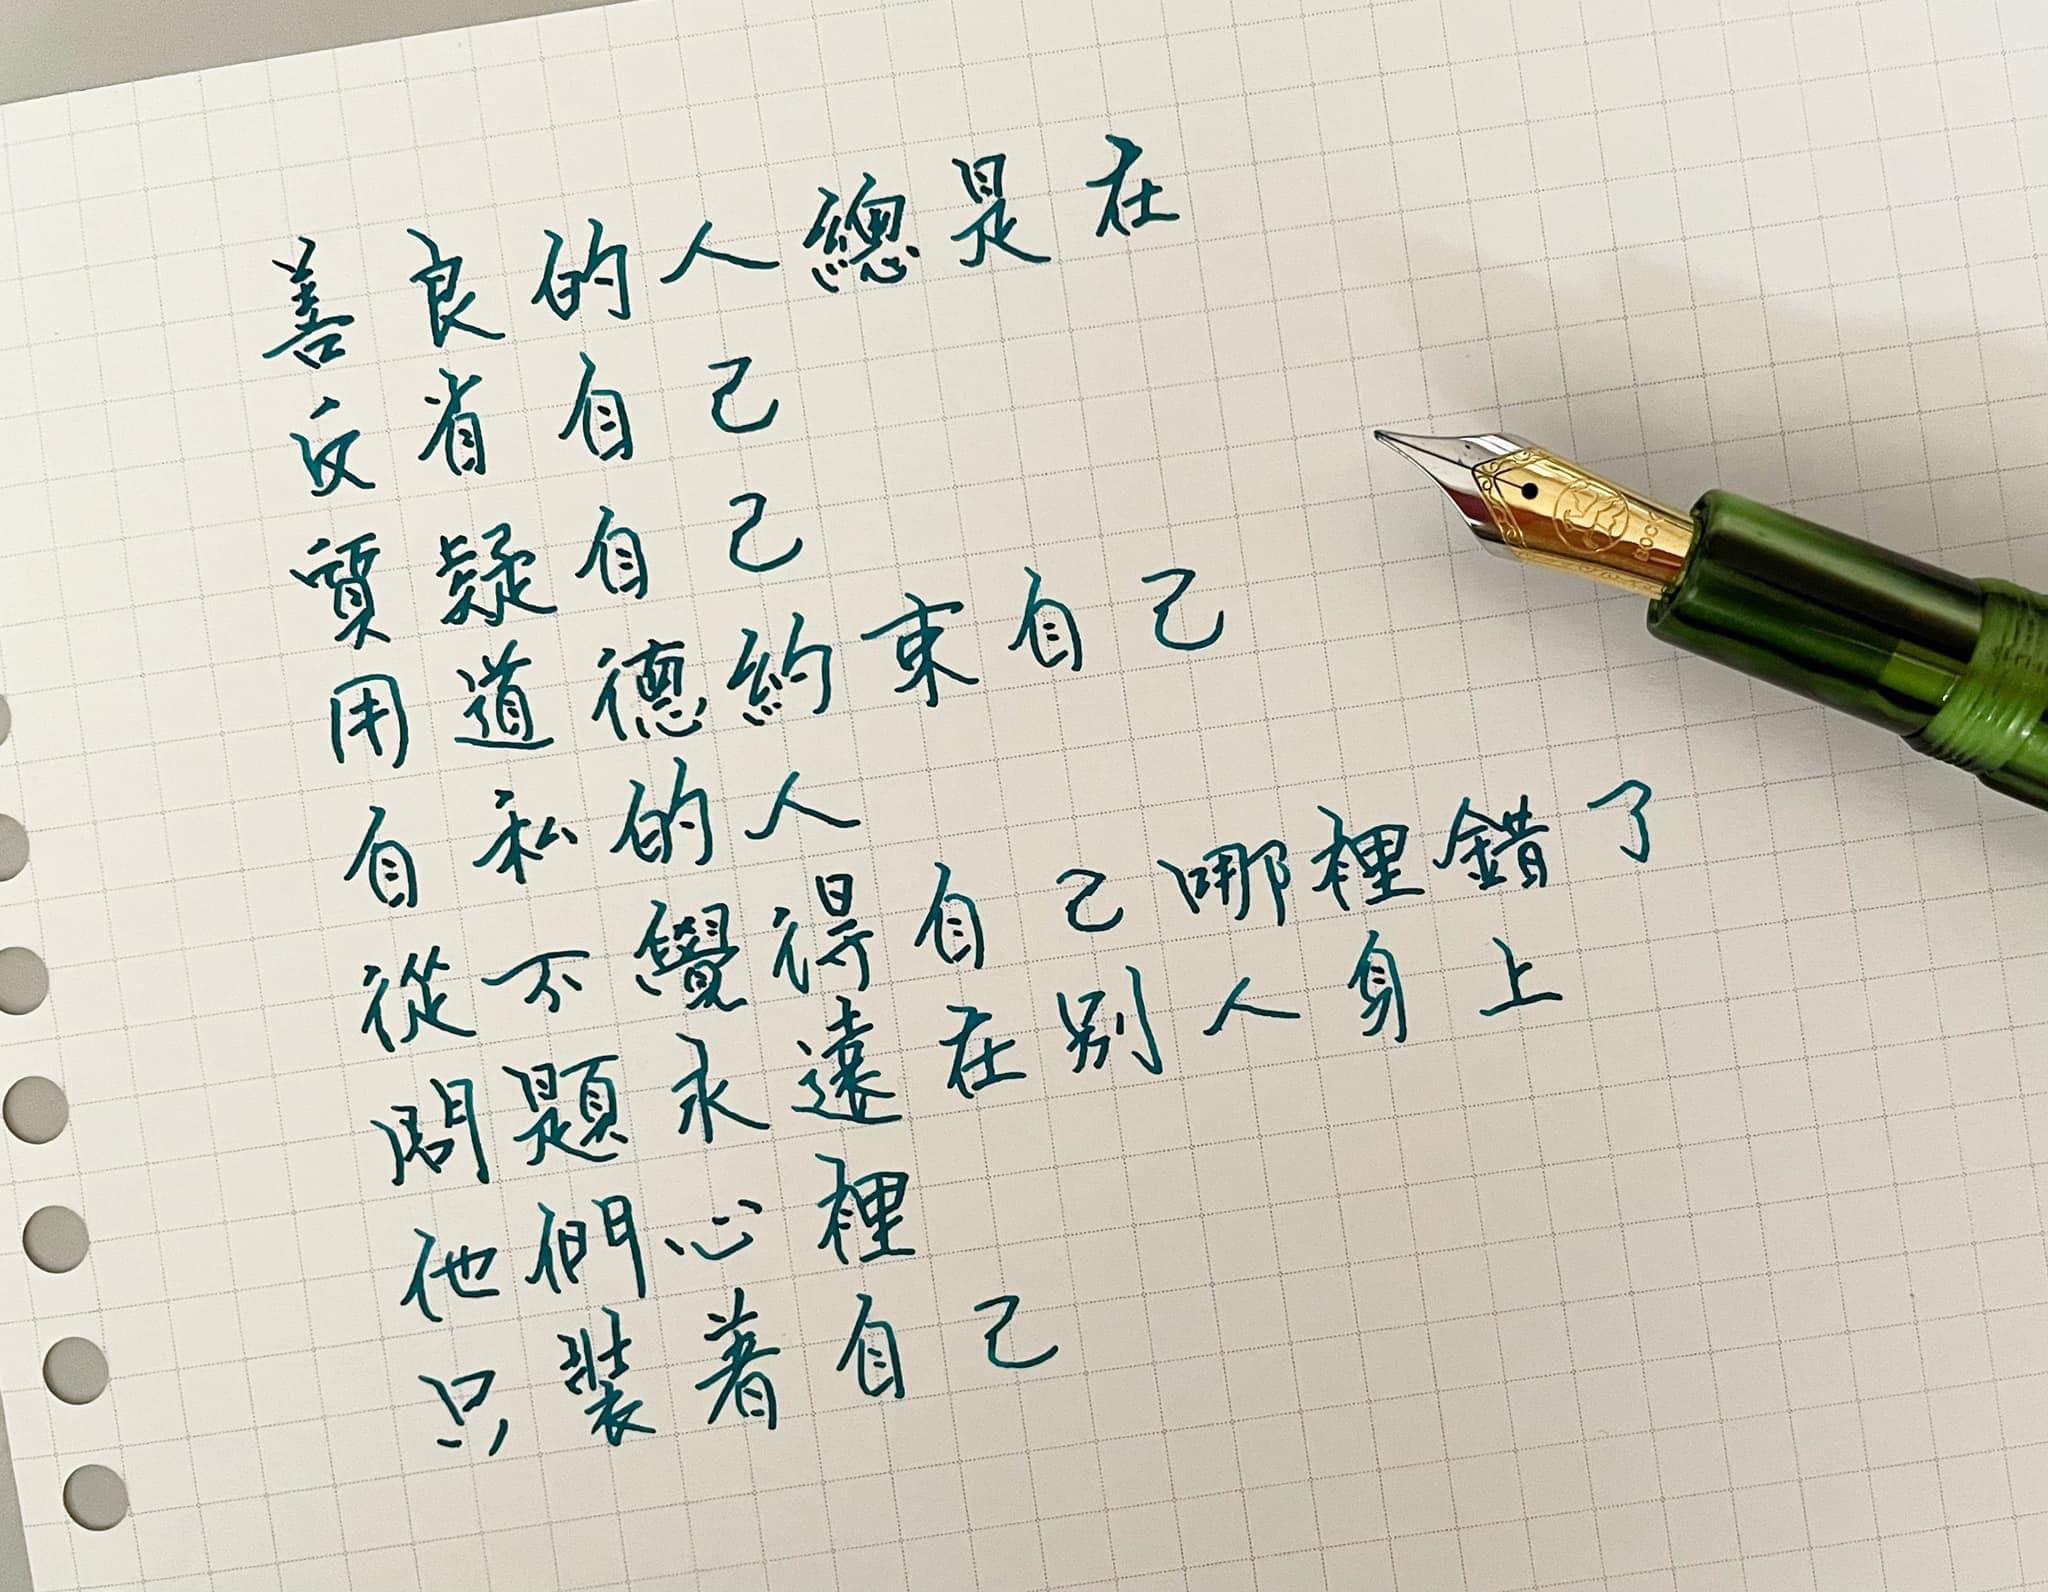 善良的人總是在
反省自己
質疑自己
用道德約束自己
自私的人
從不覺得自己哪裡錯了
問題永遠在別人身上
他們心裡
只裝著自己